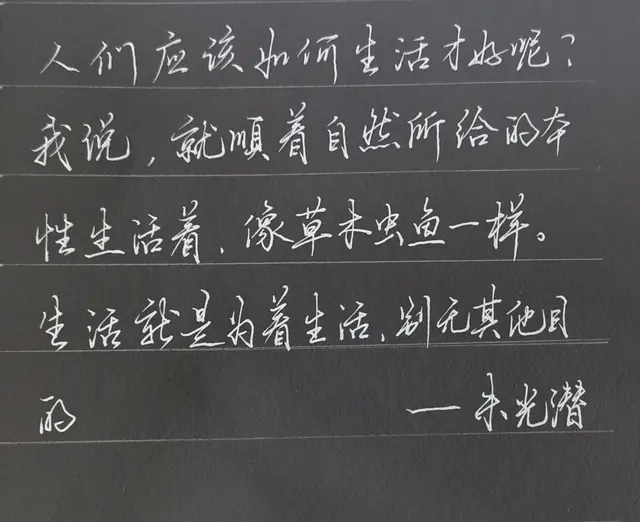 人们应该如何生活才好呢？
我说，就順着自然所给的本
性生活着，像草木虫鱼一样。
生活就是为着生活，别无其他目
的 —朱光潜